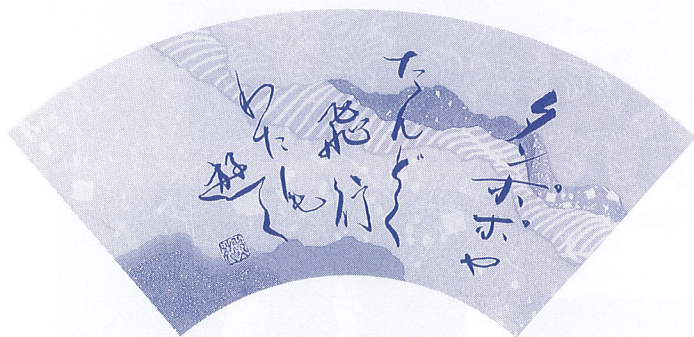 タンポポや
たんどく
飛行
わたしも